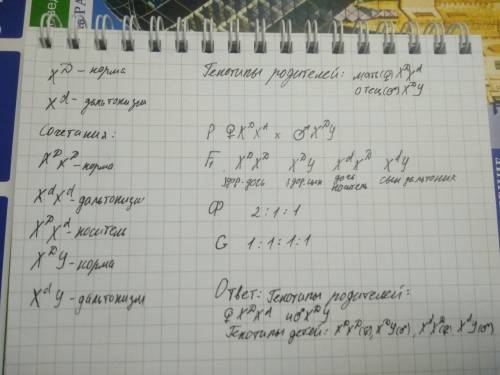 X^D - норма
X^d - дальтонизм
Сочетания:
X^D X^D - норма
X^d X^d - дальтонизм
X^D X^d - носител
X^D Y - норма
X^d Y - дальтонизм
Генотипы родителей: мать(♀) X^D X^d
отец(♂) X^D Y
P ♀ X^D X^d × ♂ X^D Y
F₁ X^D X^D X^D Y X^d X^D X^d Y
здор. дочь здор. сын дочь носитель сын дальтоник
Ф 2:1:1
G 1:1:1:1
Ответ: Генотипы родителей:
♀ X^D X^d и ♂ X^D Y
Генотипы детей: X^D X^D (♀), X^D Y (♂), X^d X^D (♀), X^d Y (♂)